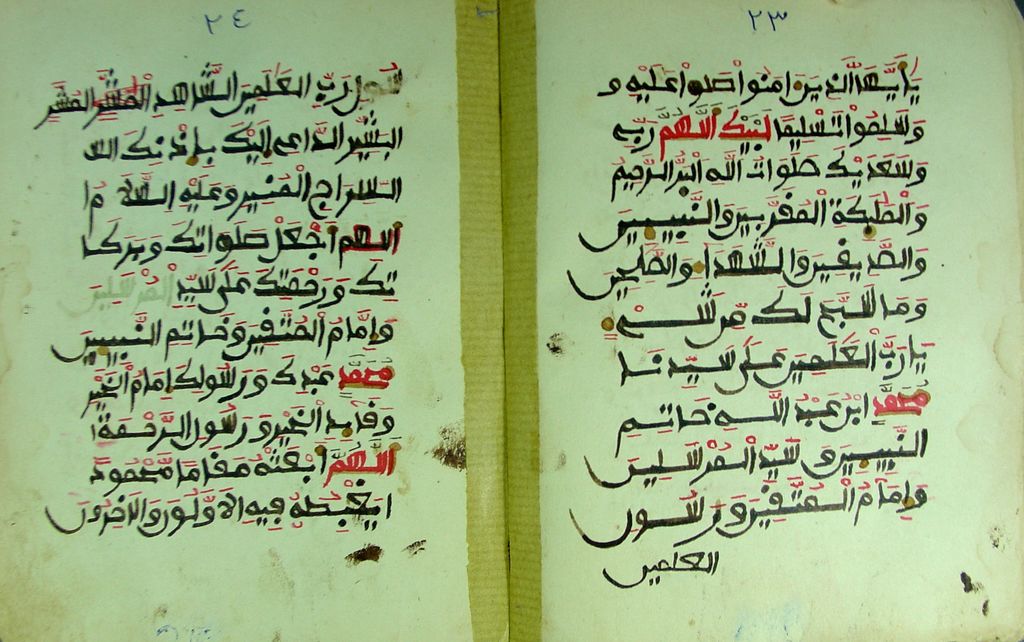 ٢٣
يا أيها الذين امنوا صلوا عليه و
وسلموا تسليما لبيك اللهم ربي
وسعديك صلوات الله البر الرحيم
والملئكة المقربين والنبيين
والصديقين والشهداء والصلحين
وما سبح لك من شيء
يا رب العلمين على سيدنا
محمد ابن عبد الله خاتم
النبيين وسيد المرسلين
وإمام المتقين ورسول
العلمين
٢٤
رسول رب العلمين الشاهد المبشر
البشير الداعي إليك بإذنك
السراج المنير وعليه السلام
اللهم اجعل صلواتك وبركا
تك ورحمتك على سيد المرسلين
وإمام المتقين وخاتم النبيين
محمد عبدك ورسولك إمام الخير
وقايد الخير ورسول الرحمة
اللهم ابعثه مقاما محمودا
يغبطه فيه الاولون والاخرون